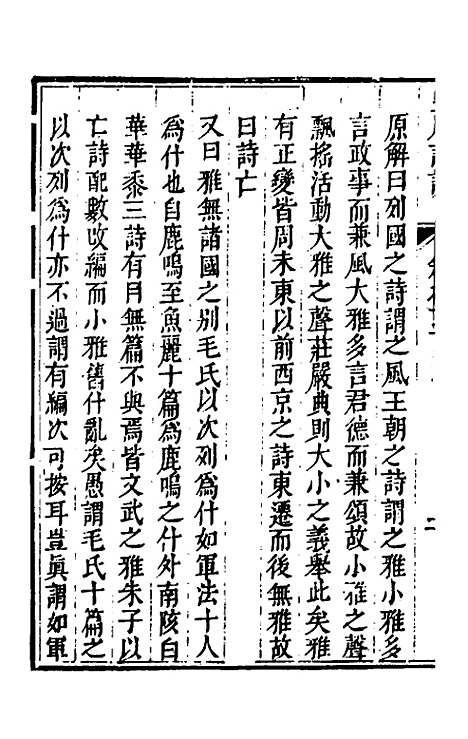 原解曰列國之詩謂之風王朝之詩謂之雅小雅多
言政事而兼風大雅多言君德而兼頌故小雅之聲
飄搖活動大雅之聲莊嚴典則大小之義舉此矣雅
有正變皆周未東以前西京之詩東遷而後無雅故
曰詩亡
又曰雅無諸國之别毛氏以次列爲什如軍法十人
爲什也自鹿鳴至魚麗十篇爲鹿鳴之什外南陔白
華華黍三詩有目無篇不與焉皆文武之雅朱子以
亡詩配數改編而小雅舊什亂矣愚謂毛氏十篇之
以次列爲什亦不過謂有編次可按耳豈眞謂如軍